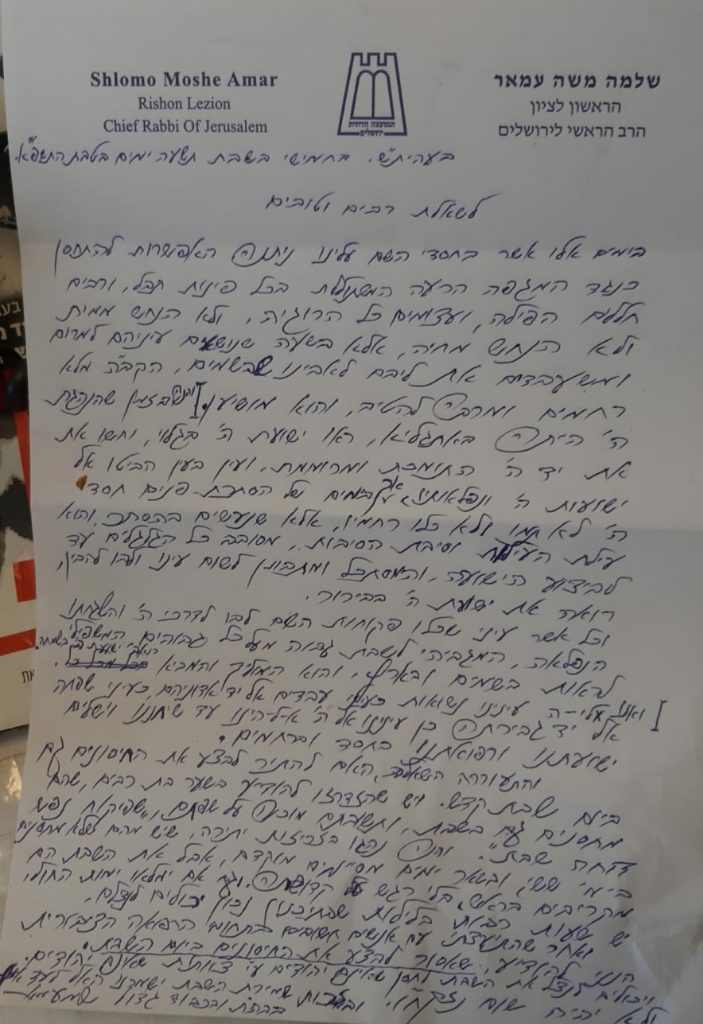 Shlomo Moshe Amar
Rishon Lezion
Chief Rabbi Of Jerusalem
המועצה הדתית
ירושלים
שלמה משה עמאר
הראשון לציון
הרב הראשי לירושלים
בעהית"ש. בחמישי בשבת תשעה ימים בטבת התשפ"א.
לשאלת רבים וטובים
בימים אלו אשר בחסדי השם עלינו ניתנה האפשרות להתחסן
כנגד המגפה הרעה המשתוללת בכל פינות תבל, ורבים
חללים הפילה, ועצומים כל הרוגיה, ולא הנחש ממית
ולא הנחש מחיה, אלא בשעה שנושאים עיניהם למרום
ומשעבדים את ליבם לאבינו שבשמים, הקב"ה מלא
רחמים ומרבה להטיב, והוא מושיע שבזמן שהנהגת
ה' היתה באתגליא, ראו ישועת ה' בגלוי, וחשו את
את יד ה' התומכת ומרוממת, ועין בעין הביטו אל
ישועות ה' ונפלאותיו אך בימים של הסתרת פנים חסד
ה' לא תמו ולא כלו רחמיו, אלא שנעשים בהסתר, והוא
עילת העילות וסיבת הסיבות, מסובב כל הגלגלים עד
לביצוע הישועה, והמסתכל ומתבונן לשום עינו ולבו להבין,
רואה את ישועת ה' בבירור.
וכל אשר עיני שכלו פקוחות השם לבו לדרכי ה' והשגחתו
הנפלאה, המגביהי לשבת גבוה מעל כל גבוהים המשפילי
לראות בשמים ובארץ, והוא המוליך והמביא
ואנו עלי-ה עינינו נשואות כעיני עבדים אל יד אדוניהם, כעיני שפחה
אל יד גבירתה כן עינינו אל ה' א-להינו עד שיחננו וישלים
ישועתנו ורפואתנו בחסד וברחמים.
והתעוררה השאלה, האם להתיר לבצע את החיסונים גם
ביום שבת קדש. ויש שהזדרזו להודיע בשער בת רבים, שהם
מחסנים גם בשבת, ותשובתם מוכנה על שפתם, "שפיקוח נפש
דוחה שבת". והנה נהגו בזריזות יתירה, שיש מהם שלא מחסנים
בימי ששי, ובשאר ימים מסיימים מוקדם, אבל את השבת הם
מקריבים בראש בלי רגש על קדושתה. וגם אם ימלאו ימות החול,
יש שעות רבות בלילות שבתיכנון נכון יכולים לנצלם,
ואחר שהתיעצתי עם אנשים חשובים בתחום הרפואה הציבורית
הינני להודיע, שאסור לבצע את החיסונים ביום השבת.
ויכולים לנצל את השבת לחסן שאינם יהודים ע"י צוותות שאינם יהודים.
ולא יהיה שום נזק ח"ו. ובזכות שמירת השבת ישמרנו האל לעד
בברכה ובכבוד גדול שמעמאר